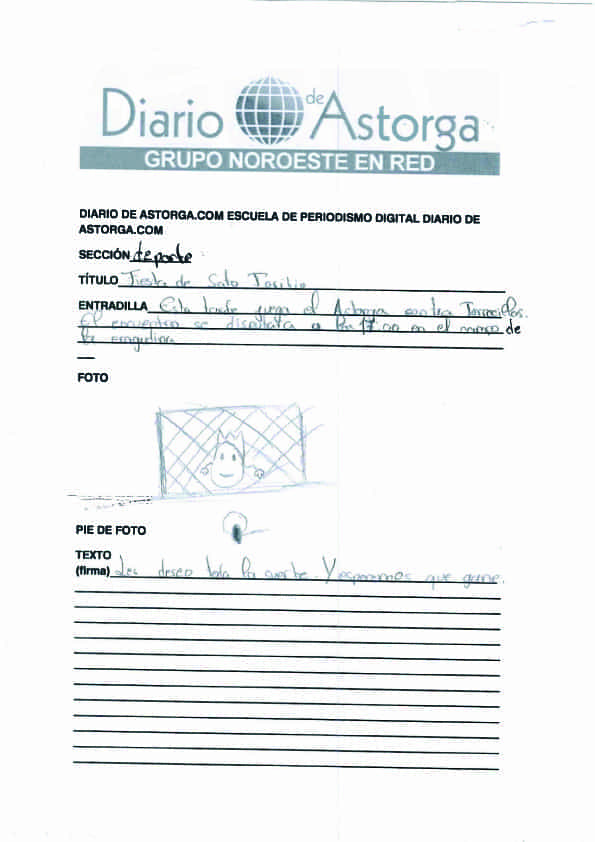 Diario de Astorga
GRUPO NOROESTE EN RED
DIARIO DE ASTORGA.COM ESCUELA DE PERIODISMO DIGITAL DIARIO DE
ASTORGA.COM
SECCIÓN deporte
TÍTULO Fiesta de Sato
ENTRADILLA Esta tarde juega el Astorga contra
El encuentro se disputara a las 17:00 en el de
la
FOTO
PIE DE FOTO
TEXTO
(firma) Les deseo toda la suerte. Y esperemos que gane.